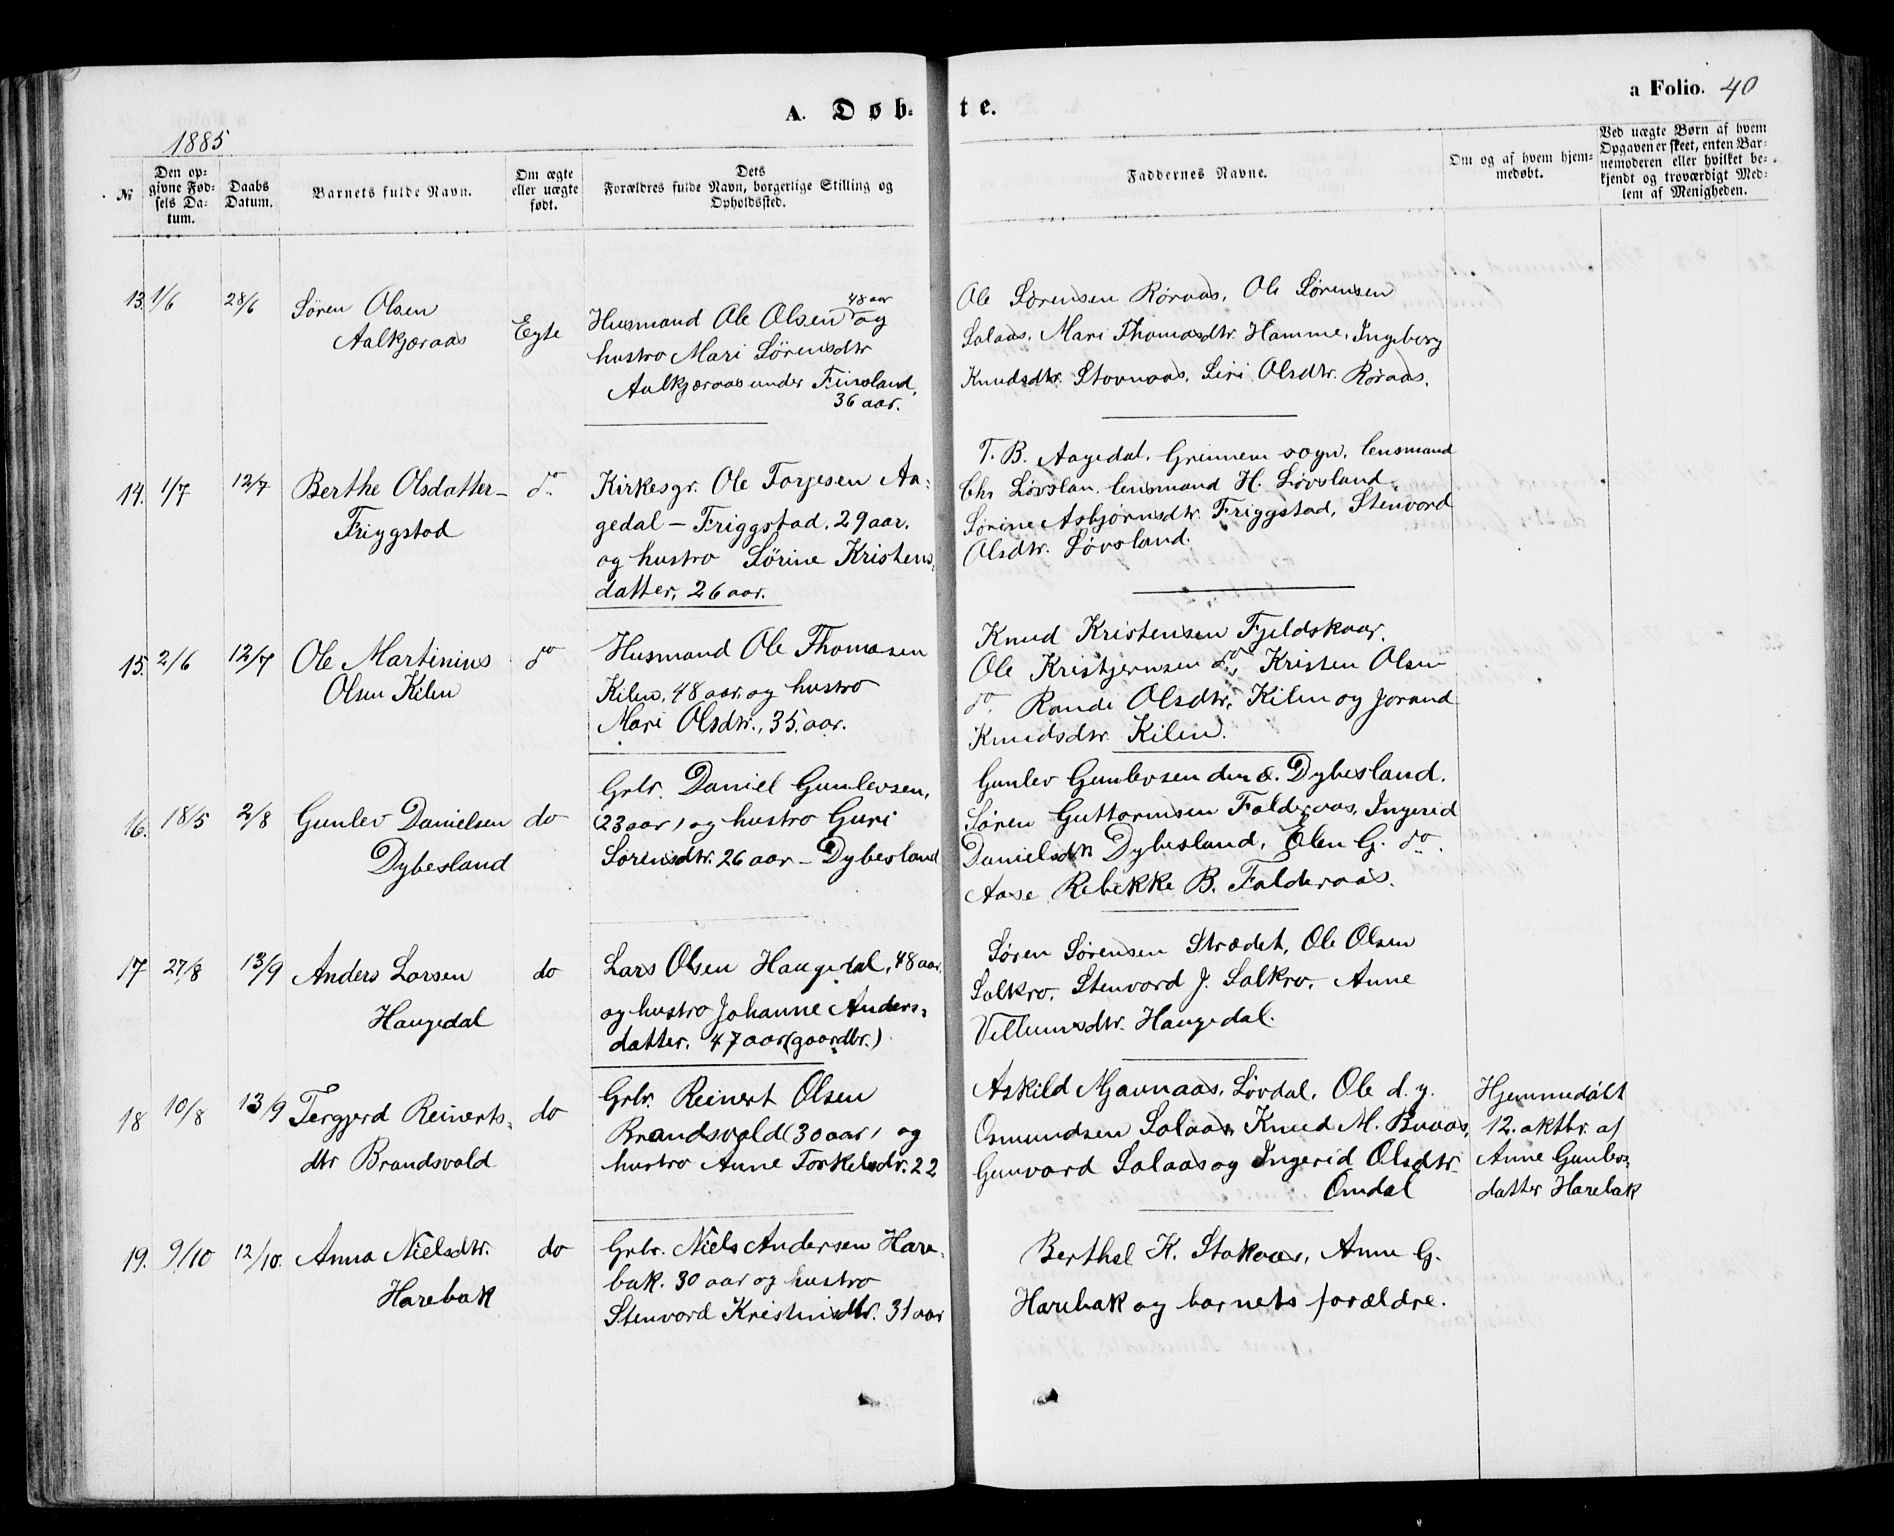 A. Døb-te.
a Folio. 40
1885
№
Den op-
givne Fød-
sels Da-
tum.
Daabs
Datum.
Barnets fulde Navn.
Om ægte
eller uægte
født.
Dets
Forældres fulde Navn, borgerlige Stilling og
Opholdssted.
Faddernes Navne.
Om og af hvem hjem-
medøbt.
Ved uægte Børn af hvem
Opgaven er skeet, enten Bar-
nemoderen eller hvilket be-
kjendt og troværdigt Med-
lem af Menigheden.
13. 1/6 28/6
Søren Olsen
Aalkjæraas
Egte
48 aar
Husmand Ole Olsen og
hustro Mari Sørensdtr
Aalkjæraas under Finsland,
36 aar.
Ole Sørensen Røraas, Ole Sørensen
Salaas, Mari Thomasdtr. Hamme, Ingeborg
Knudsdtr. Stovnaas, Siri Olsdtr. Røraas.
14. 1/7 12/7
Berthe Olsdatter-
Friggstad
do
Kirkesgr. Ole Torjesen Aa-
gedal - Friggstad, 29 aar,
og hustro Sørine Kristens-
datter, 26 aar.
T. B. Aagedal, Grinnem sogn, lensmand
Chr Løvslan. lensmand H. Løvsland.
Sørine Asbjørnsdtr. Friggstad, Stenvord
Olsdtr. Løvsland.
15. 2/6 12/7
Ole Martinius
Olsen Kilen
do
Husmand Ole Thomasen
Kilen, 48 aar, og hustro
Mari Olsdtr., 35 aar.
Knud Kristensen Fjeldskaar,
Ole Kristjernsen do, Kristen Olsen
do. Randi Olsdtr. Kilen og Jorand
Knudsdtr. Kilen.
16. 18/5 2/8
Gunlev Danielsen
Dybesland
do
Grbr. Daniel Gunlevsen,
(23 aar) og hustro Guri
Sørensdtr. 26 aar - Dybesland
Gunlev Gunlevsen den æ. Dybesland.
Søren Guttormsen Falderaas, Ingerid
Danielsdtr Dybesland, Elen G. do.
Aase Rebekke B. Falderaas.
17 27/8 13/9
Anders Larsen
Haugedal
do
Lars Olsen Haugedal, 48 aar,
og hustro Johanne Anders-
datter, 47 aar (gaardbr.)
Søren Sørensen Strædet, Ole Olsen
Salkro, Stenvord J. Salkro, Anne
Villumsdtr. Haugedal.
18 10/8 13/9
Tergjerd Reinerts-
dtr Brandsvold
do
Grbr. Reinert Olsen
Brandsvold (30 aar) og
hustro Anne Torkelsdr. 22
Askild Mjaunaas, Løvdal, Ole d. y.
Osmundsen Salaas, Knud M. Buaas,
Gunvord Salaas og Ingerid Olsdtr
Omdal
Hjemmedøbt
12. oktbr. af
Anne Gunlevs-
datter Harebak
19. 9/10 12/10.
Anna Nielsdtr.
Harebak
do
Grbr. Niels Andersen Hare-
bak. 30 aar og hustro
Stenvord Kristensdtr. 31 aar
Berthel K. Stakaas, Anne G.
Harebak og barnets forældre.